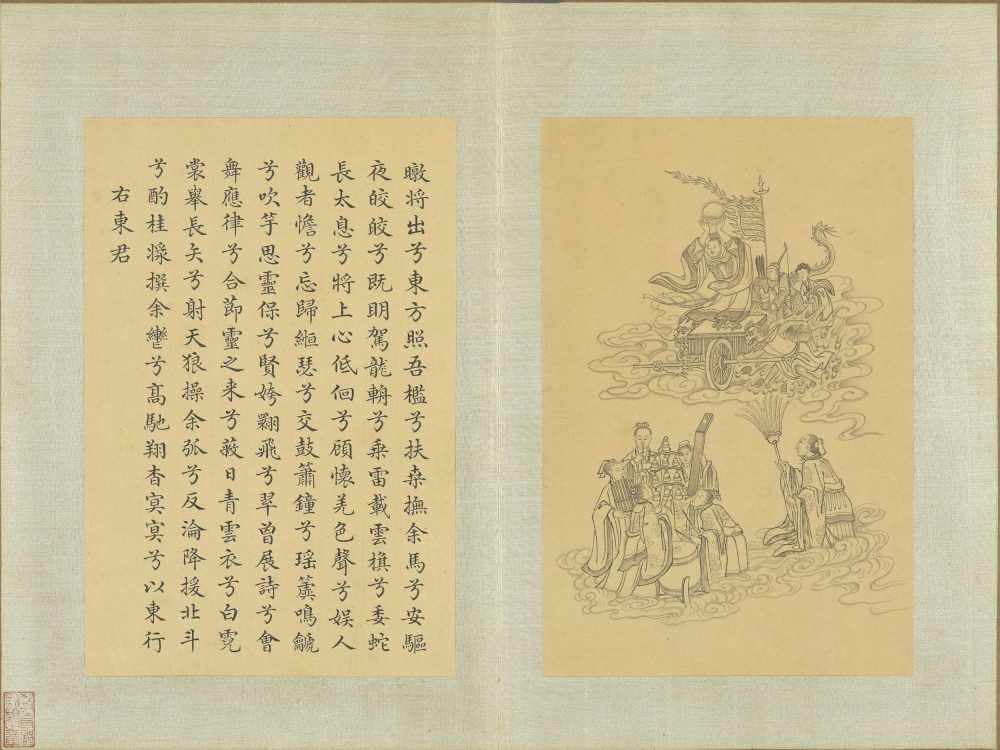 暾将出兮東方照吾檻兮扶桒撫余馬兮安驅
夜皎皎兮既明駕龍輈兮乘雷載雲旗兮委蛇
長太息兮將上心低佪兮顧懷羌色聲兮娱人
觀者憺兮忘歸縆瑟兮交鼓簫鐘兮瑶簴鳴鯱
兮吹竽思靈保兮賢姱翾飛兮翠曾展詩兮會
舞應律兮合節靈之来兮蔽日青雲衣兮白霓
裳舉長矢兮射天狼操余弧兮反淪降援北斗
兮酌桂漿撰余轡兮髙馳翔杳冥冥兮以東行
右東君